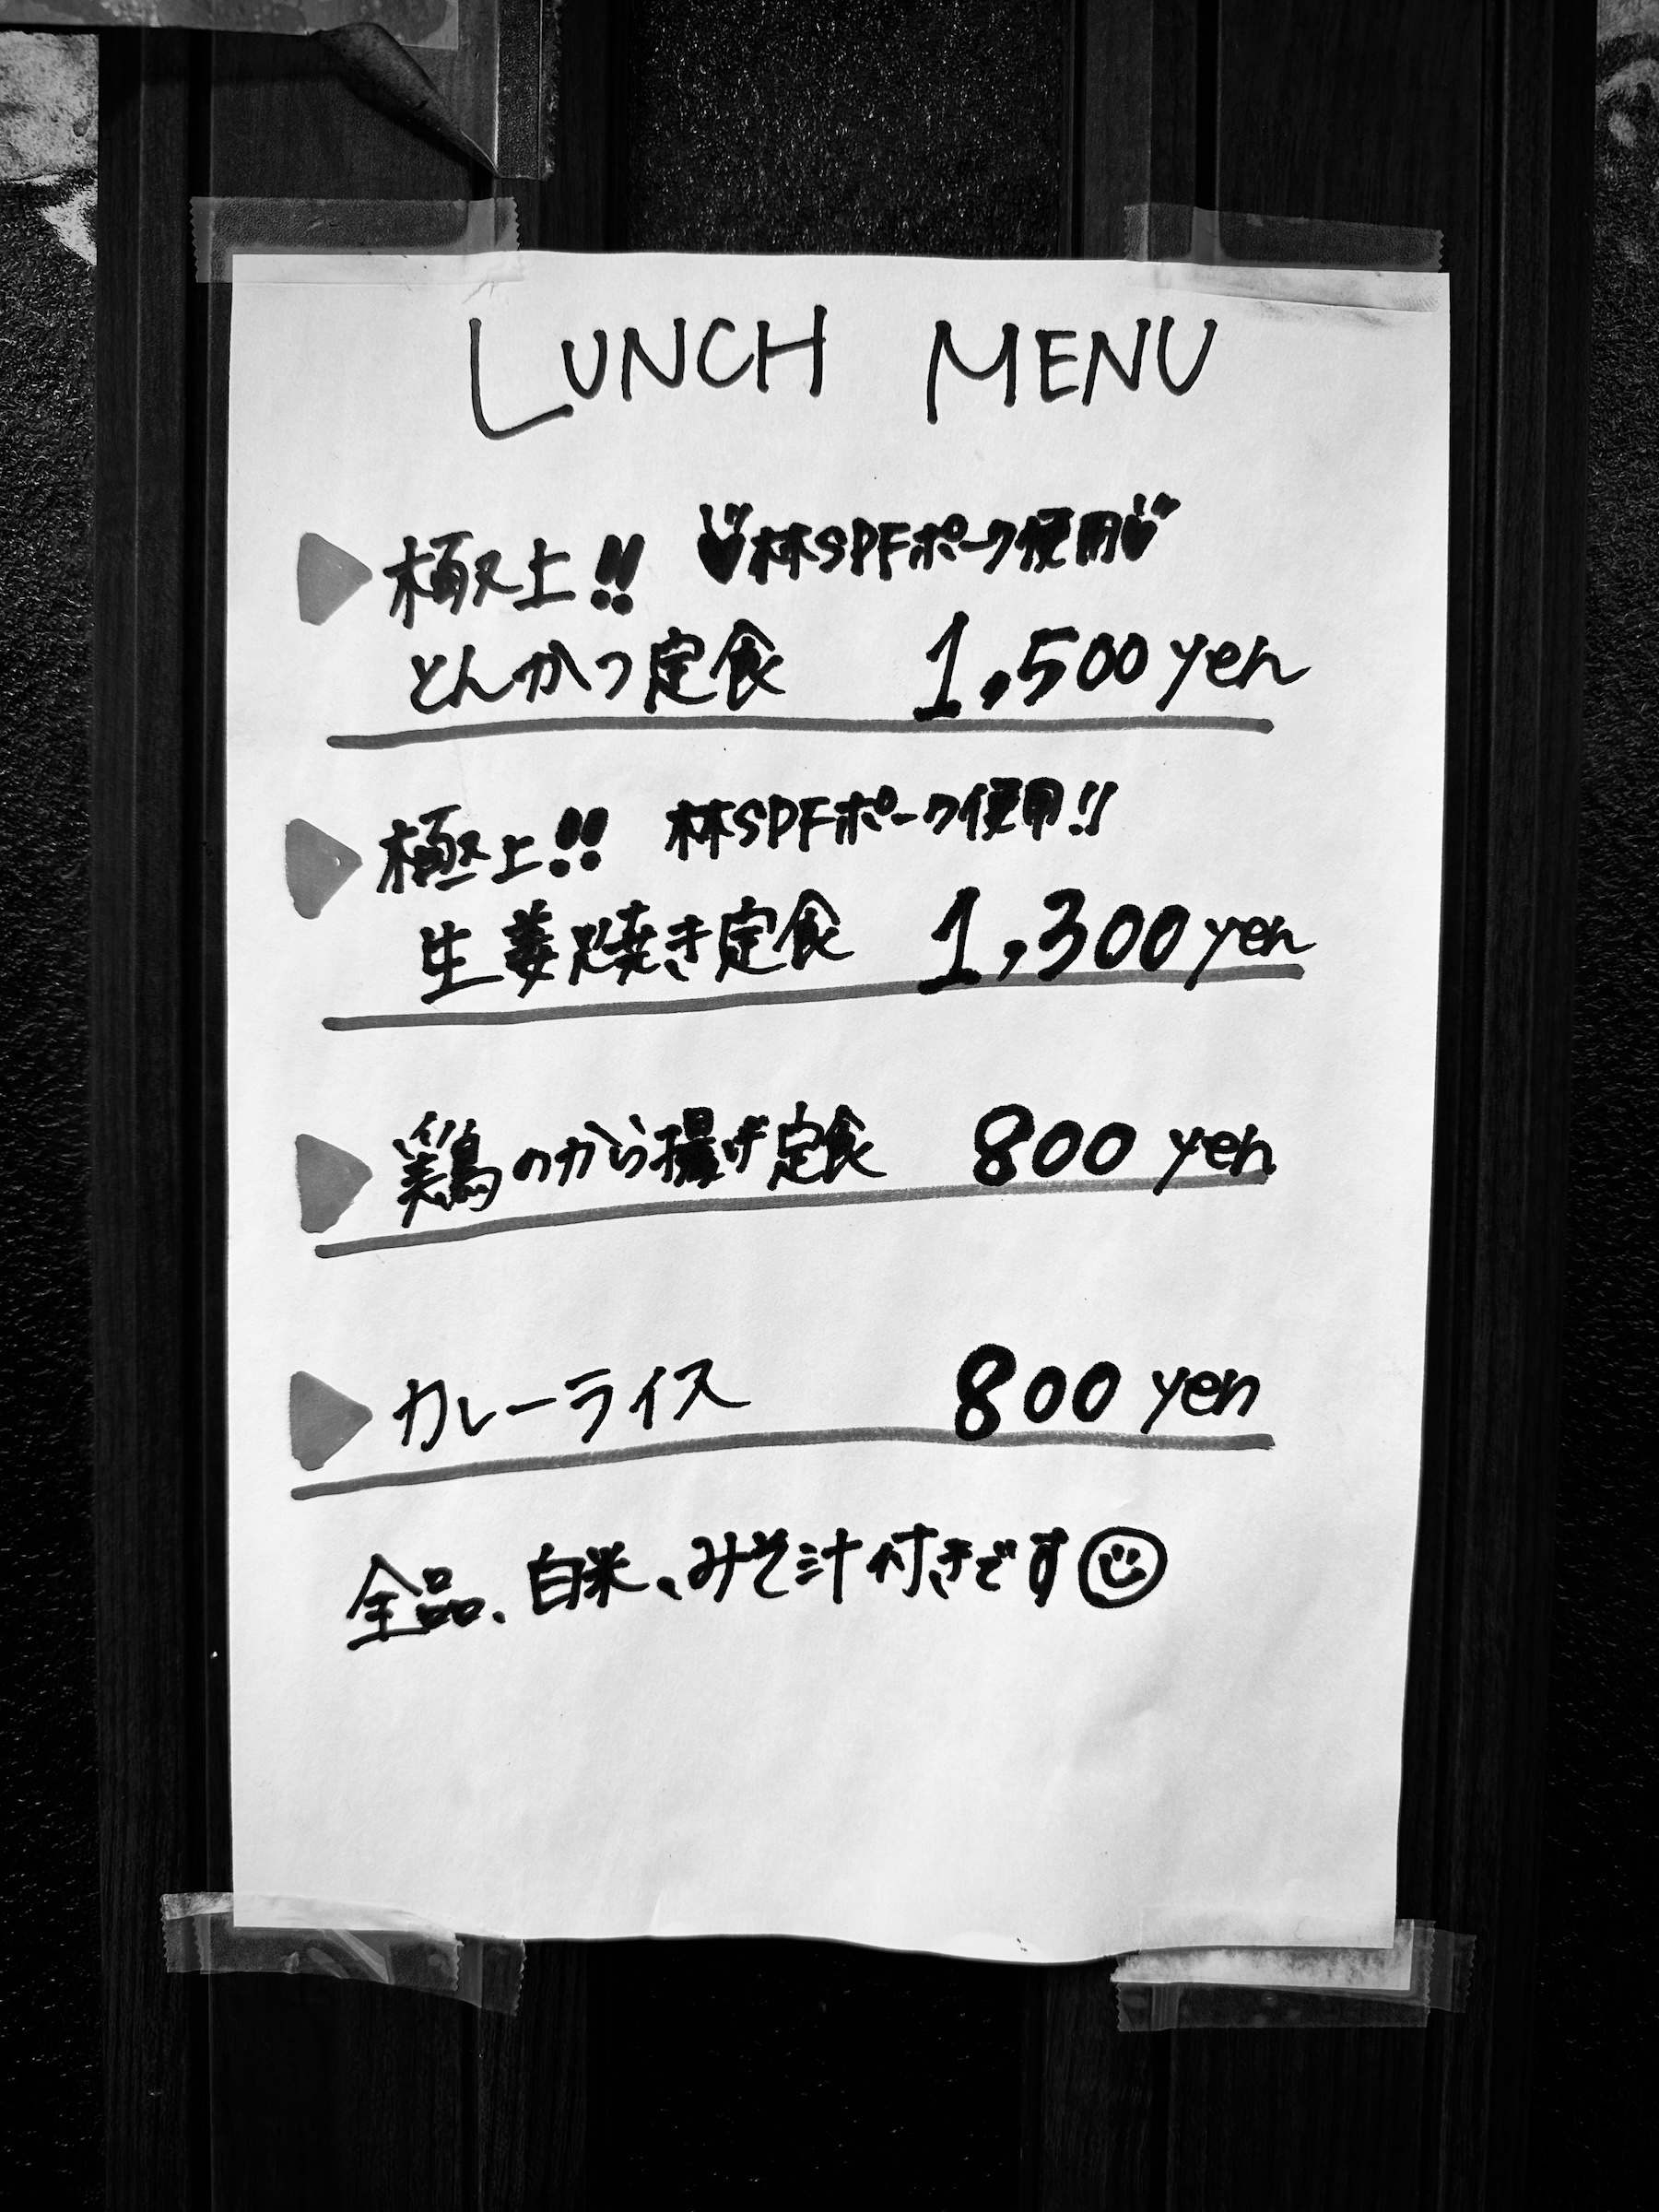 LUNCH MENU
極上!! 林SPFポーク使用
とんかつ定食 1,500 yen
極上!! 林SPFポーク使用!!
生姜焼き定食 1,300 yen
鶏のから揚げ定食 800 yen
カレーライス 800 yen
全品、白米、みそ汁付きです